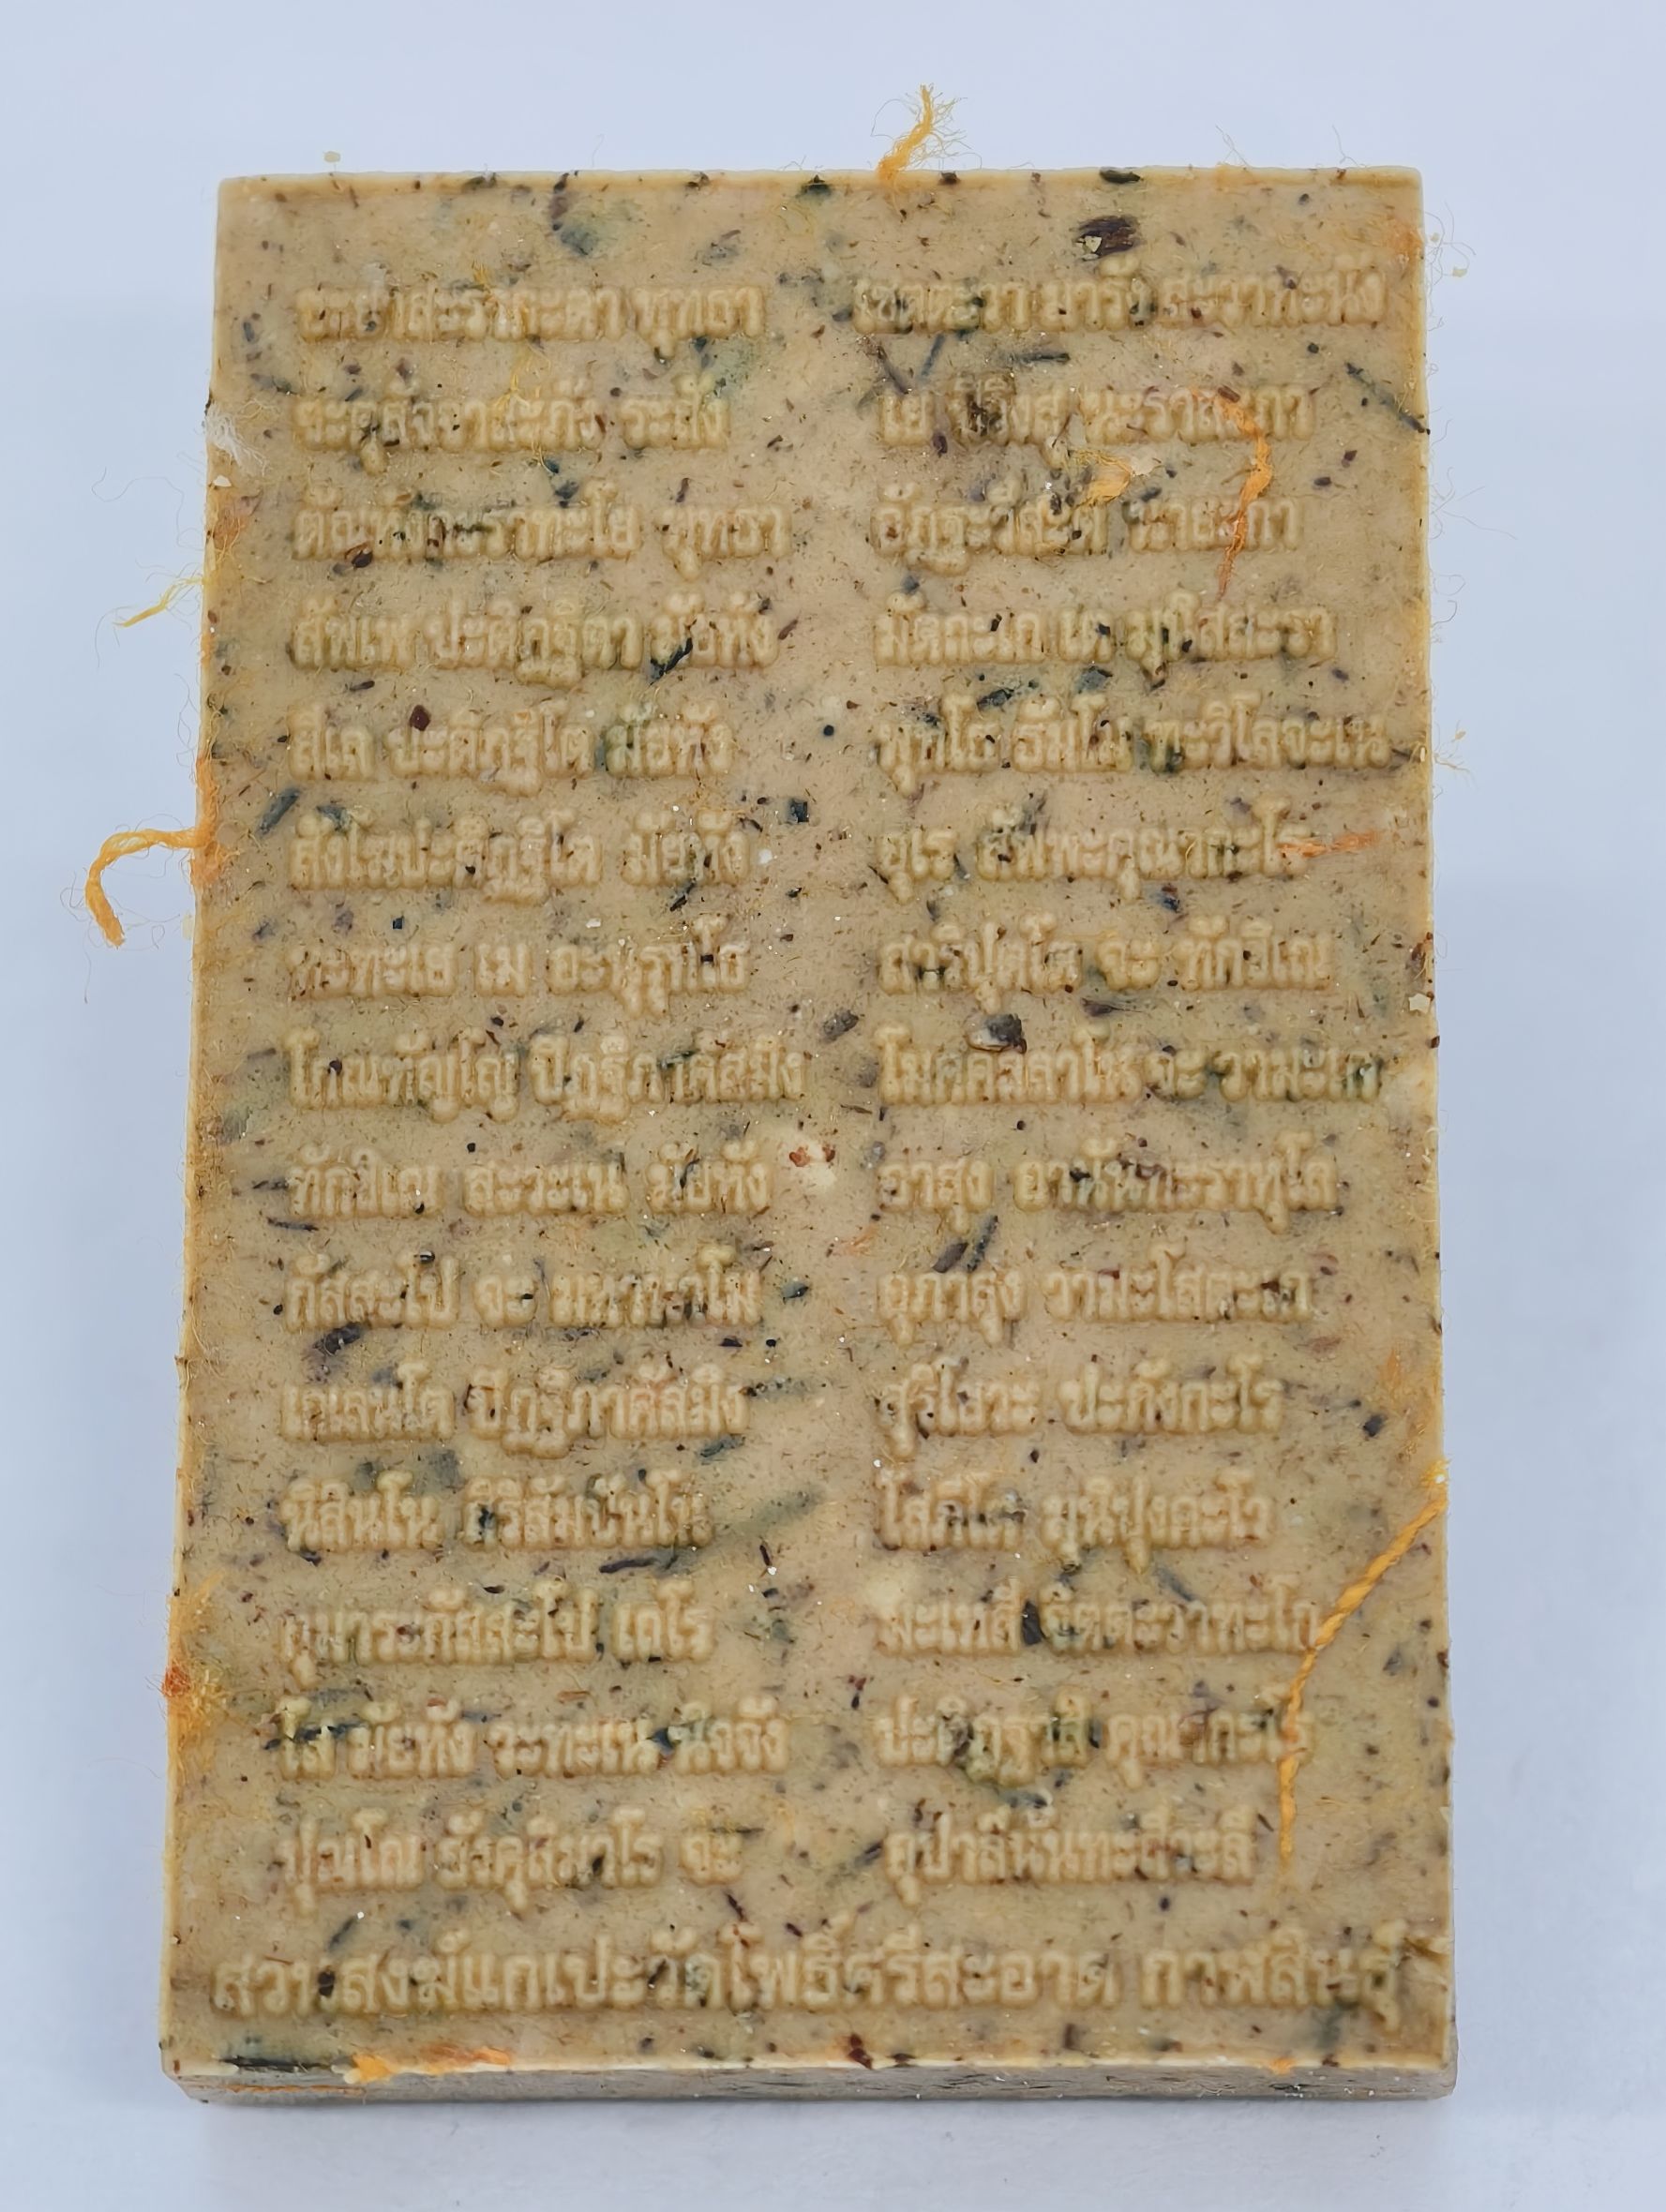 ชะยาสะรากะตา พุทธา เชตตะวา มารัง สะวาหะนัง
จะตุสัจจาสะภัง ระสัง เย ปิวิงสุ นะราสะภา
ตัณหังกะราทะโย พุทธา อัฏฐะวีสะติ นายะกา
สัพเพ ปะติฏฐิตา มัยหัง มัตถะเก เต มุนิสสะรา
สีเส ปะติฏฐิโต มัยหัง พุทโธ ธัมโม ทะวิโลจะเน
สังโฆปะติฏฐิโต มัยหัง อุเร สัพพะคุณากะโร
หะทะเย เม อะนุรุทโธ สารีปุตโต จะ ทักขิเณ
โกณฑัญโญ ปิฏฐิภาคัสมิง โมคคัลลาโน จะ วามะเก
ทักขิเณ สะวะเน มัยหัง อาสุง อานันทะราหุโล
กัสสะโป จะ มหานาโม อุภาสุง วามะโสตะเก
เกเสนโต ปิฏฐิภาคัสมิง สุริโยวะ ปะภังกะโร
นิสินโน สิริสัมปันโน โสภีโต มุนิปุงคะโว
กุมาระกัสสะโป เถโร มะเหสี จิตตะวาทะโก
โส มัยหัง วะทะเน นิจจัง ปะติฏฐาสิ คุณากะโร
ปุณโณ อังคุลิมาโร จะ อุปาลีนันทะสีวะลี
สวน.สงฆ์แกเปะวัดโพธิ์ศรีสะอาด กาฬสินธุ์